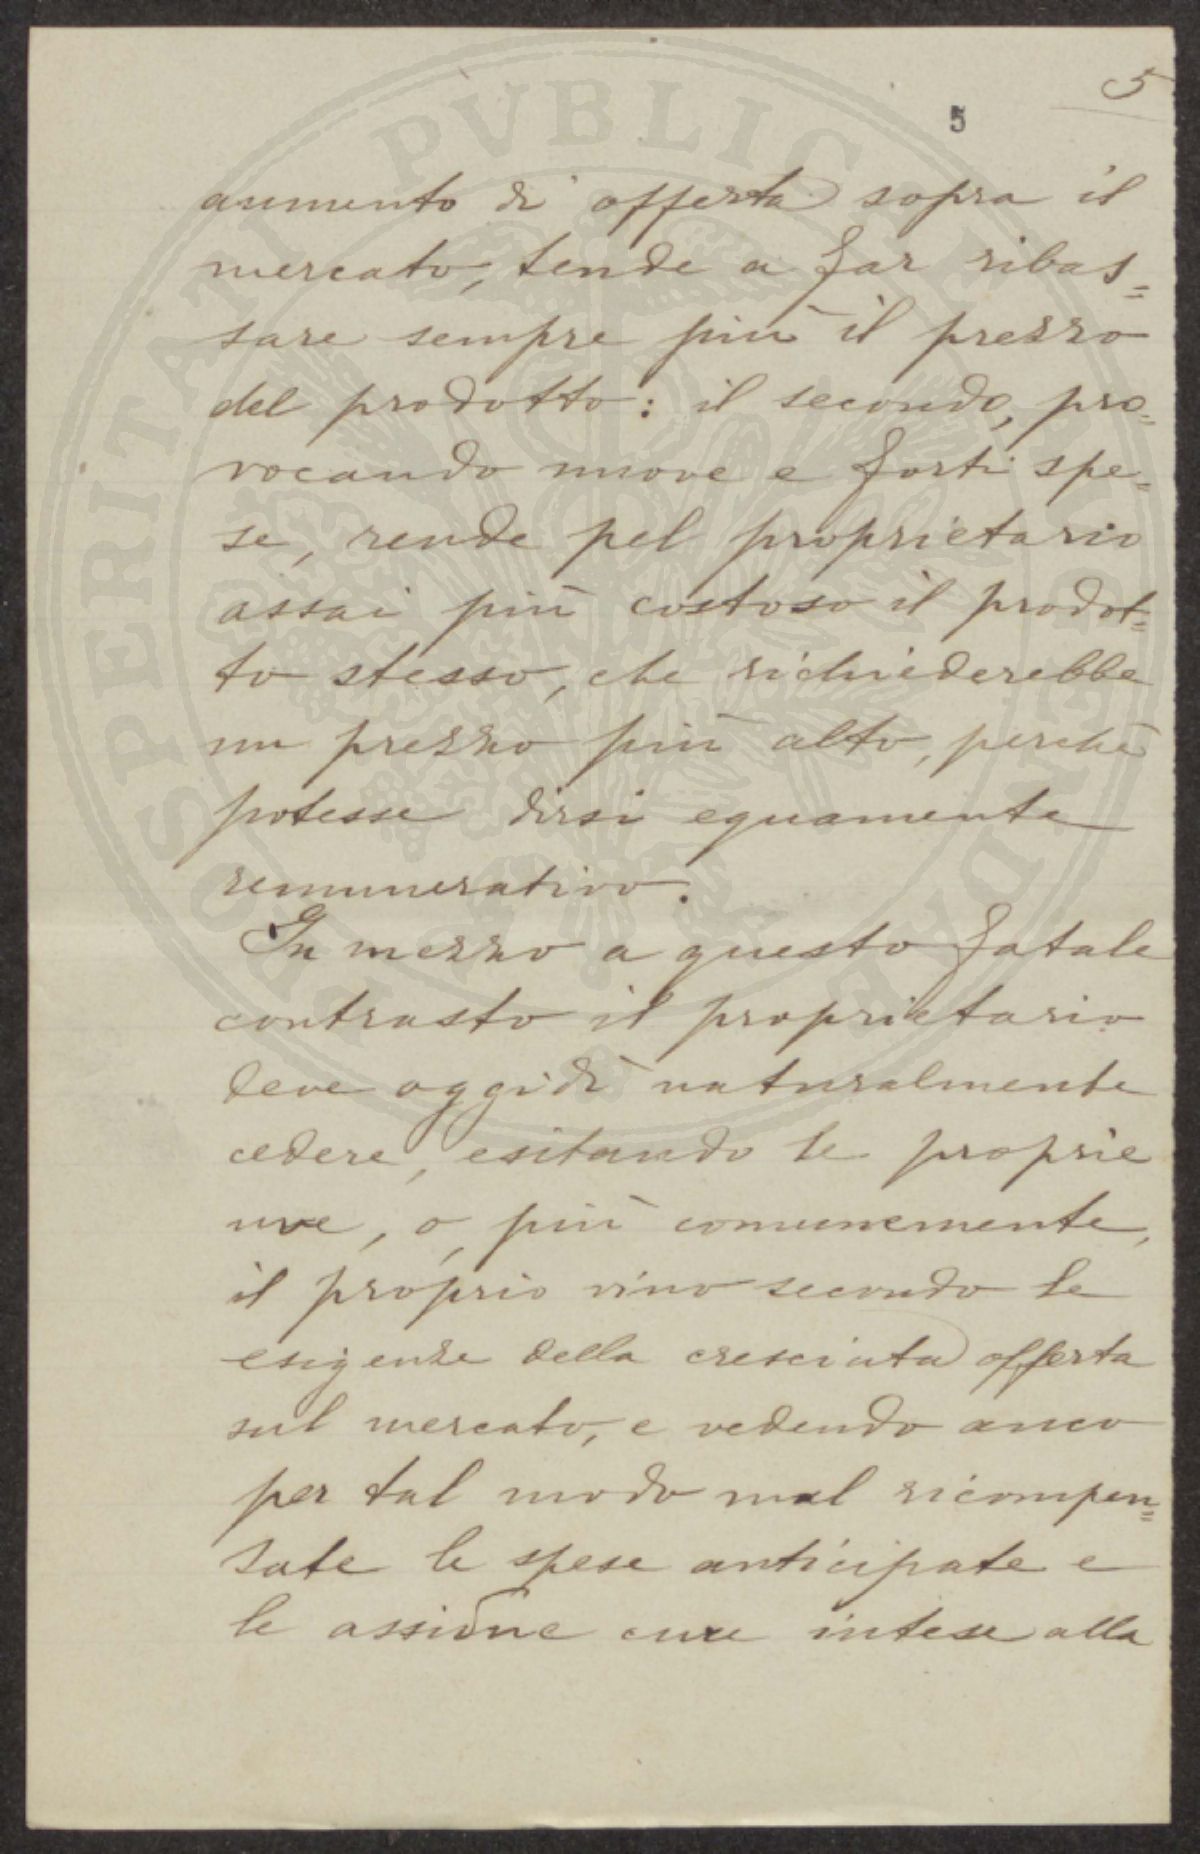 5
5
aumento di offerta sopra il
mercato, tende a far ribas=
sare sempre più il prezzo
del prodotto: il secondo, pro=
vocando nuove e forti spe=
se, rende pel proprietario
assai più costoso il prodot=
to stesso, che richiederebbe
un prezzo più alto, perchè
potesse dirsi equamente
remunerativo.
In mezzo a questo fatale
contrasto il proprietario
deve oggidì naturalmente
cedere, esitando le proprie
uve, o, più comunemente,
il proprio vino secondo le
esigenze della cresciuta offerta
sul mercato, e vedendo anco
per tal modo mal ricompen=
sate le spese anticipate e
le assidue cure intese alla
PROSPERITATI PVBLICAE AVGENDAE